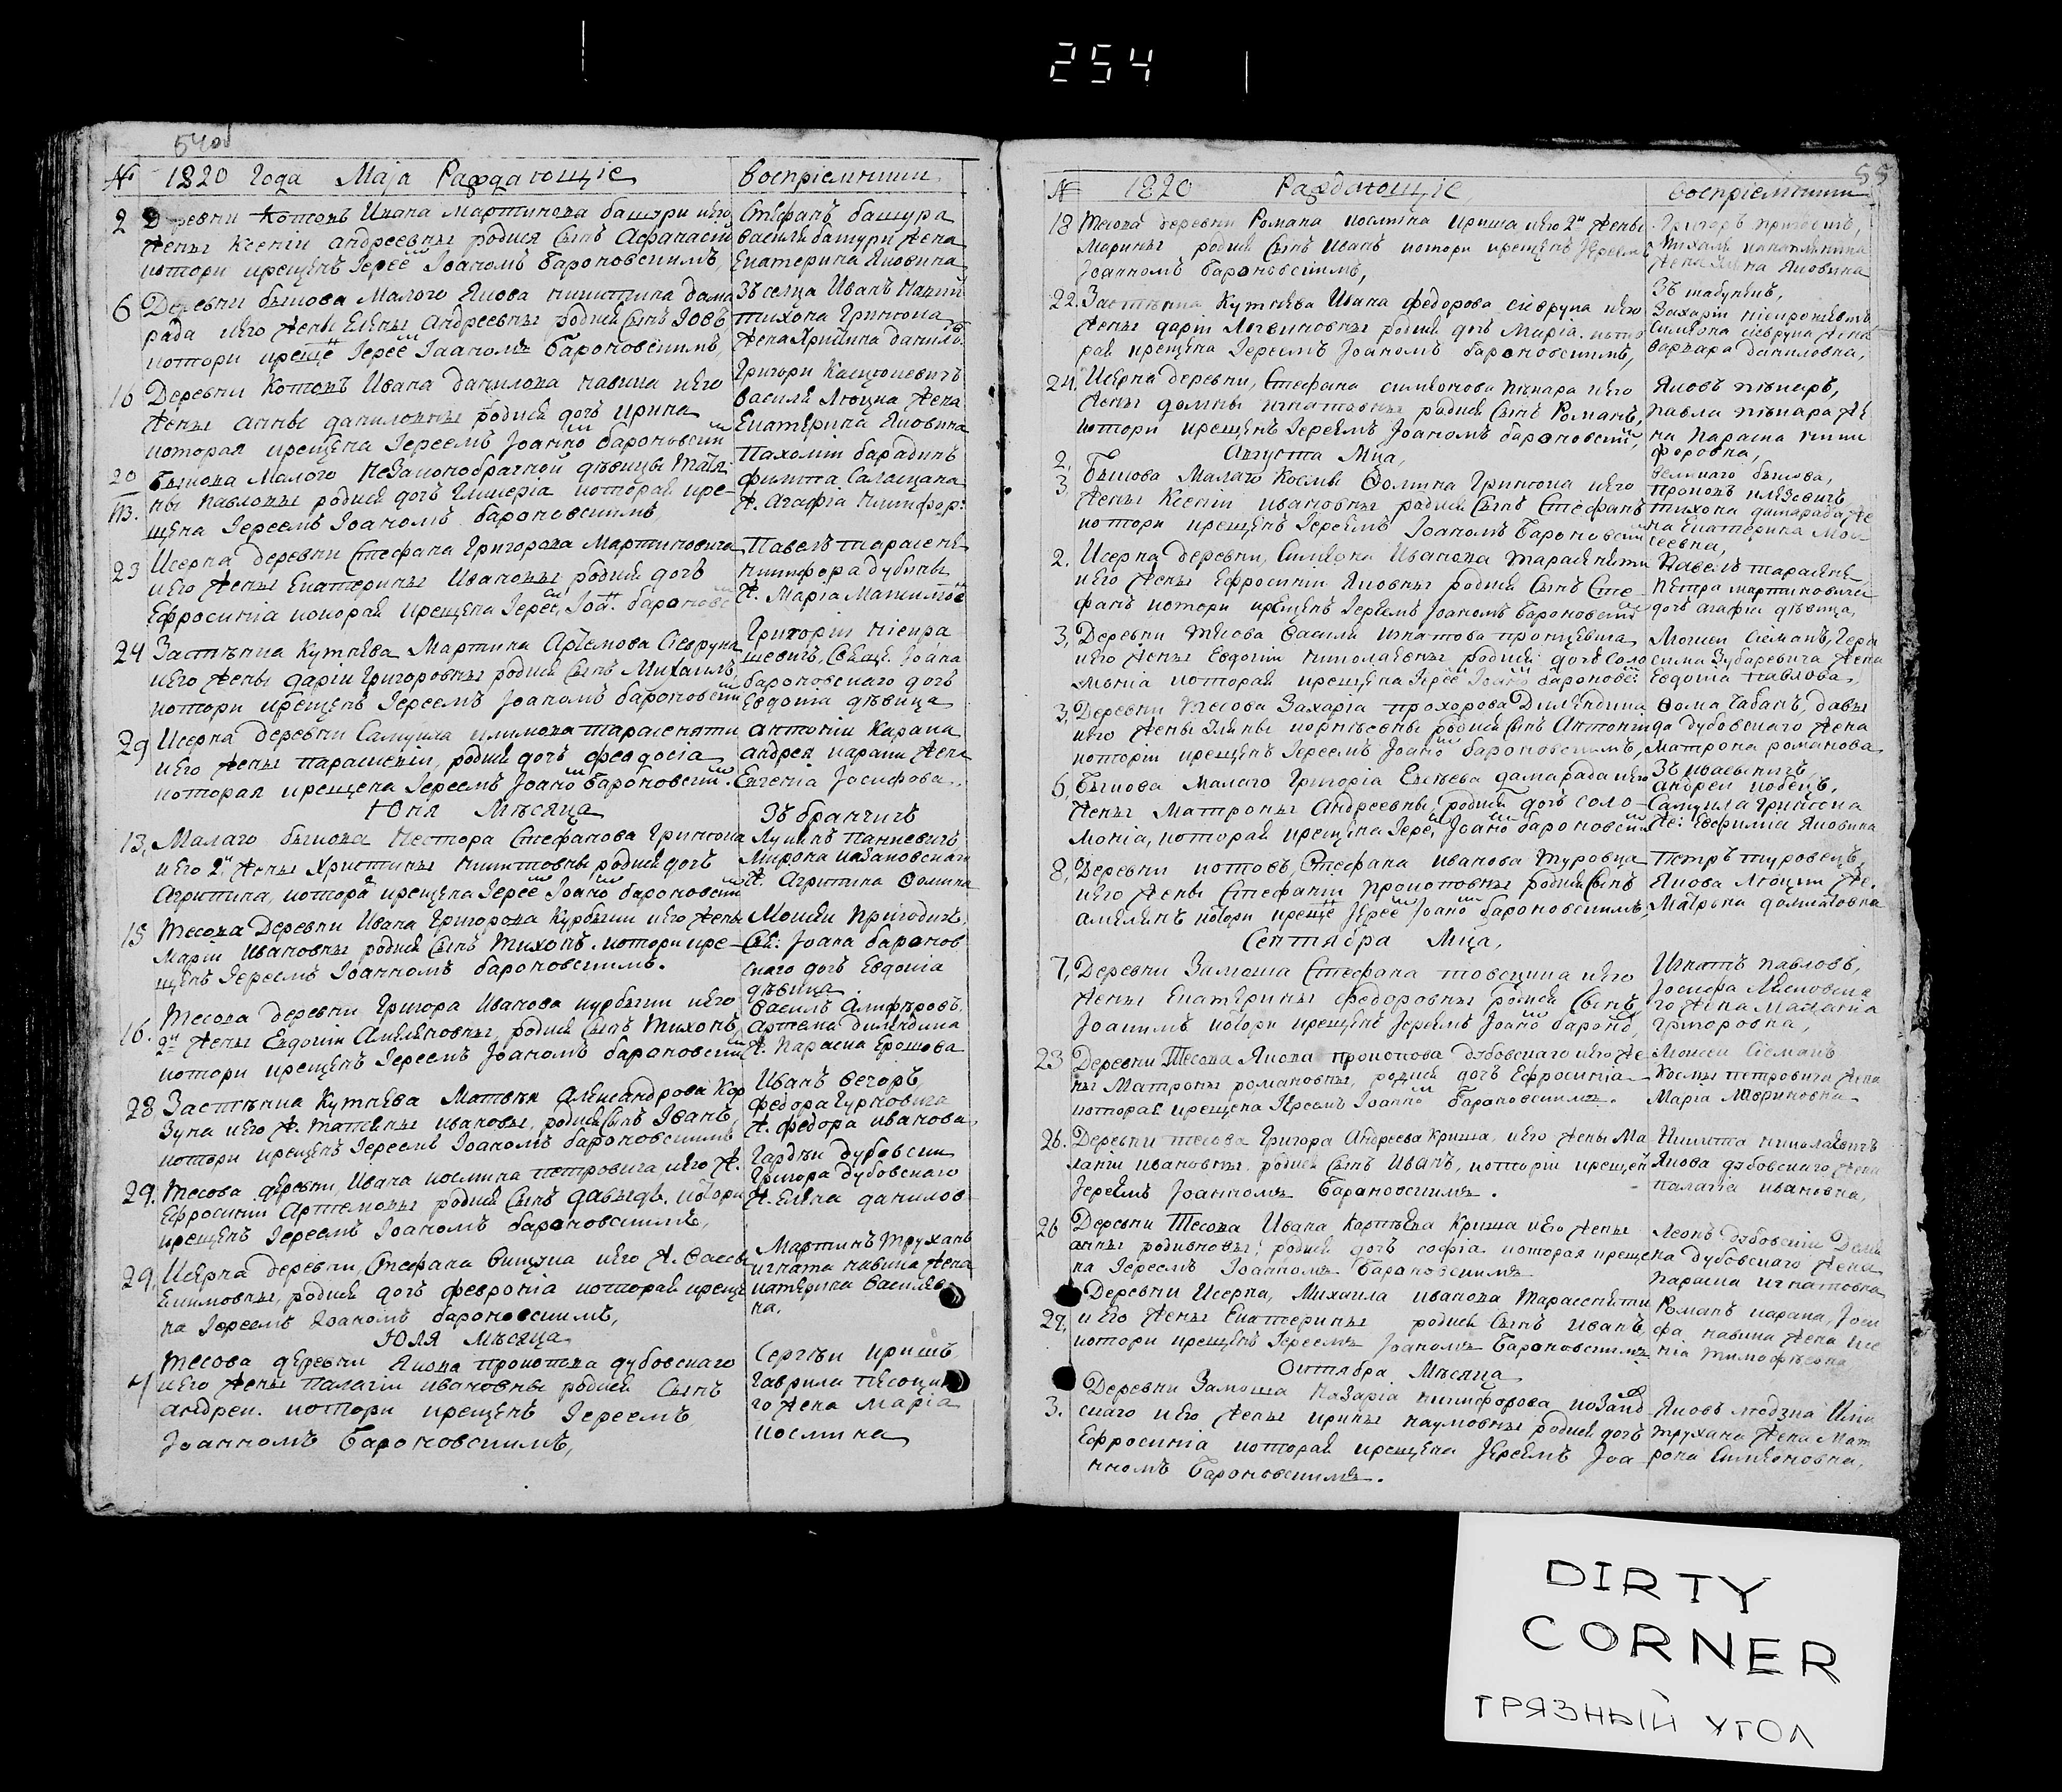 254
54об
№ 1820 Года Маја Раждающіе воспріемники
2 Деревни Котовъ Ивана Мартинова башури иего
жены Ксеніи андреевны родися сынъ Афанасій
котори крещенъ Іерее Іоаномъ Бароновскимъ,
Стефанъ башура
василя башури жена
Екатерина Яковина
6 Деревни бытова Малого Якова никитина дама
рада иего жены Елены андреевны родися сынъ Іовъ
котори креще Іерее Іоаномъ Бароновскимъ,
Зъ селца Иванъ
тихона Гринкона
жена Хрисина данил.
16 Деревни Котовъ Ивана данилова навиша иего
жены анны даниловны родися дочъ ирина
которая крещена Іереемъ Іоанно бароновски
Григори
василя Люцка жена
Екатерина Яковина
20 Бытова Малого незаконобрачной дѣвицы Татя
ны павловны родися дочъ Гликерія которая кре-
щена Іереемъ Іоаномъ бароновскимъ
Пахоміи барадинъ
филипа Салацкана
ж. Агафія Никифор:
23 Исерна деревни Стефана Григорова Мартиновича
иего жены Екатерины Ивановы родися дочъ
Ефросинія которая крещена Іерее, Іоа. бароновс
Павелъ тарасеня
никифора дубины
ж. Марія
24 Застѣнка Кутнева Мартина Артемова Севрука
иего жены даріи Григоровны родися сынъ Михаилъ
котори крещенъ Іереемъ Іоаномъ бароновски
Григоріи
шевичъ, Свяще. Іоана
бароновскаго дочъ
Евдокія дѣвица
29 Исерна деревни Самуила климова тарасеняти
иего жены параскевіи, родися дочъ феодосія
которая крещена Іереемъ Іоано Бароновски.
антоніи Карана
андрея карани жена
Евгенія Іосифова.
Юня Мѣсяца
13, Малаго бытова Нестора Стефанова Гринкона
иего 2й жены Христины никитовны родися дочъ
Агрипина, котора крещена Іерее Іоано бароновски
Зъ бранчичъ
Лукянъ
Мирона казановскаго
ж. Агрипина Фомина
15 Тесова Деревни Ивана Григорова Курбыки иего жены
Маріи Ивановны родися сынъ Тихонъ. котори кре-
щенъ Іереемъ Іоанномъ бароновскимъ.
Мосеи Пригодичъ
Свя: Јоана баронов
скаго дочъ Евдокіа
дѣвица
16. Тесова деревни Григора Иванова курбыки иего
2й жены Евдокіи Амеляновны, родися сынъ Тихонъ
котори крещенъ Іереемъ Јоаномъ бароновски
Василь Алиферовъ
Артема
ж. Параска Ерошова
28 Застѣнка Кутнева Матвѣя Александрова Кор
зуна иего ж. Татяны ивановы, родися сынъ Іванъ,
котори крещенъ Іереемъ Іоаномъ бароновскимъ
Иванъ вечоръ,
федора Гурновича
ж. федора иванова,
29. Тесова деревни, Ивана космина петровича, иего ж.
Ефросини Артемовы родися сынъ давыдъ. котори
крещенъ Іереемъ Іоаномъ бароновскимъ,
Гордѣи дубовски
Григора дубовскаго
ж. Елена данилов
29, Исерна деревни, Стефана иего ж. Васси
Екимовны, родися дочъ февронія которая креще
на Іереемъ Іоаномъ бароновскимъ,
Мартинъ Труханъ
игната навиша жена
катерина Василев
на.
Юля Мѣсяца
4 Тесова деревни Якова прокопова дубовскаго
иего жены палагіи ивановны родися сынъ
андреи. котори крещенъ Іереемъ
Јоанномъ Бароновскимъ,
Сергѣи кришъ
Гаврила
го жена Маріа
космина
55
№ 1820 Раждающіе воспріемники
18 Тесова деревни Романа космина криша иего 2й жены
Марины родися сынъ Иванъ котори крещенъ Іереемъ
Јоанномъ Бароновскимъ,
Григоръ пригодичъ,
Михаила
жена Яковина
22. Застѣнка Кутнева Ивана федорова севрука иего
жены даріи Логвиновны родися дочъ Маріа. кото
рая крещена Іереемъ Јоаномъ бароновскимъ,
Захаріи
Симеона севрука жена
варвара даниловна,
24. Исерна деревни, Стефана симионова пѣкара иего
жены домны игнатовны родися сынъ Романъ,
котори крещенъ Іереемъ Јоаномъ бароновски,
Яковъ пѣкаръ,
павла пѣкара же
на параска ники
форовна,
Августа Мца,
2, 3, Бытова Малаго Космы Фомина Гринкона иего
жены Ксеніи ивановны родися сынъ Стефанъ
котори крещенъ Іереемъ Јоаномъ Бароновски
великаго бытова,
тихона дамарада же
на Екатерина Мои
сеевна,
2. Исерна деревни, Симиона Иванова тарасеняти
иего жены Ефросиніи Яковны родися сынъ Сте-
фанъ котори крещенъ Іереемъ Јоаномъ Бароновски
Павелъ тарасеня,
петра мартиновича
дочъ агафія дѣвица,
3, Деревни тесова Василя игнатова
иего жены Евдокіи николаевны родися дочъ соло
монія которая крещена Іерее Јоано бароновс
Мосеи Сіоманъ, Гера
сима Зубаревича жена
Евдокіа Павлова,
3, Деревни Тесова Захаріа прохорова
иего жены Улянны корнѣевны родися сынъ антони
которіи крещенъ Іереемъ Јоано бароновскимъ,
Фома Чабанъ, давы
да дубовскаго жена
матрона романова
6, Бытова Малаго Григорія Евсѣева дамарада иего
жены Матроны Андреевны, родися дочъ соло-
монія, которая крещена Іере, Јоано бароновски
андреи кобецъ,
Самуила Гринкона
же: Евфимія Яковина
8, Деревни котовъ, Стефана иванова туровца
иего жены Стефаніи прокоповны родися сынъ
амелянъ котори креще Јерее Јоано бароновскимъ,
Петръ туровецъ,
Якова Люцки же.
Матрона
Сентября Мца,
7, Деревни Замоша Стефана иего
жены Екатерины федоровны родися сынъ
Јоакимъ котори крещенъ Јереемъ Јоано бароно
Игнатъ павловъ,
го жена Маланіа
григоровна,
23 Деревни Тесова Якова прокопова дубовскаго иего же
ны Матроны романовны, родися дочъ Ефросиніа
которая крещена Іереемъ Іоанно Бароновскимъ.
Моисеи Сіоманъ
Космы петровича жена
Маріа
26. Деревни тесова Григора Андреева Криша, иего жены Ма
ланіи ивановны родися сынъ Иванъ, которіи креще
Јереемъ Јоанномъ Барановскимъ.
Никита николаевичъ
Якова дубовскаго, жена
палагіа ивановна,
26 Деревни Тесова Ивана Карпѣева Криша иего жены
анны родивновы, родися дочъ софіа которая креще
на Іереемъ Іоанномъ Барановскимъ
Леонъ дубовскіи
дубовскаго жена
параска игнатовна
29, Деревни Исерна, Михаила иванова Тарасеняти
иего жены Екатерины родися сынъ иванъ,
котори крещенъ Іереемъ Јоаномъ Бароновскимъ
Романъ карана, Јоси
фа навиша жена
Тимофѣевна
Октября Мѣсяца
3. Деревни Замоша Назаріа никифорова
скаго иего жены ирины наумовны родися дочъ
Ефросиніа которая крещена Јереемъ Јоа-
нномъ Бароновскимъ.
Яковъ
трухана жена Мат
рона Симеоновна,
DIRTY
CORNER
ГРЯЗНЫЙ УГОЛ